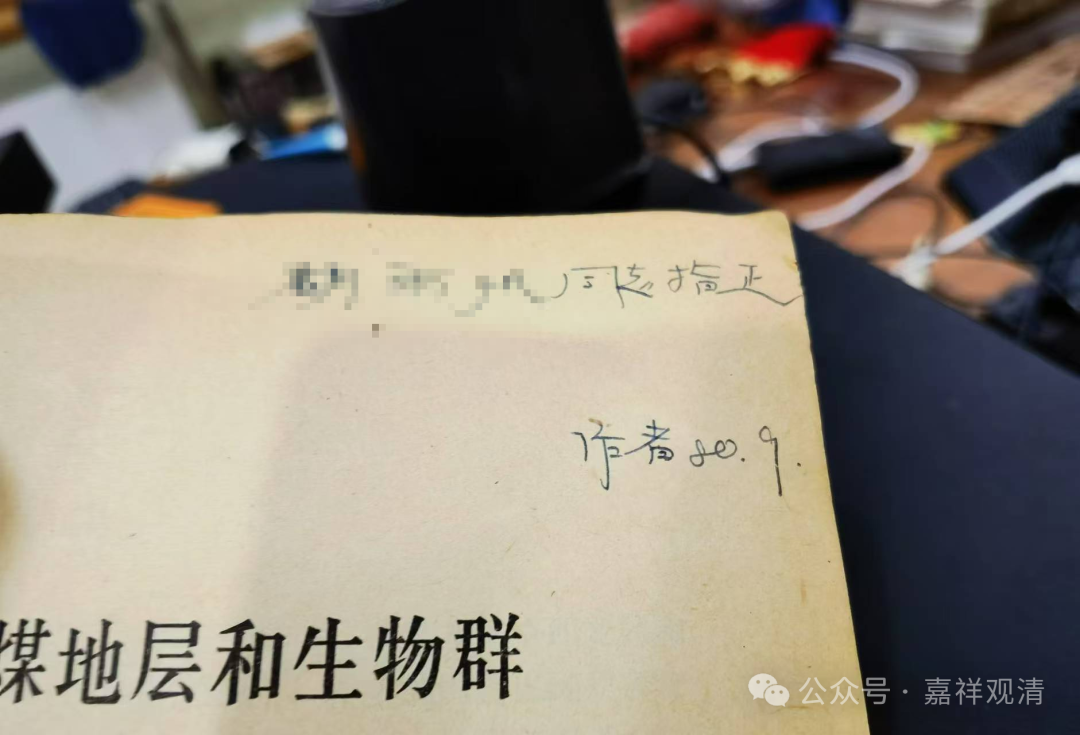 同志指正
作者 80.9.
煤地层和生物群
公众号 · 嘉祥观清